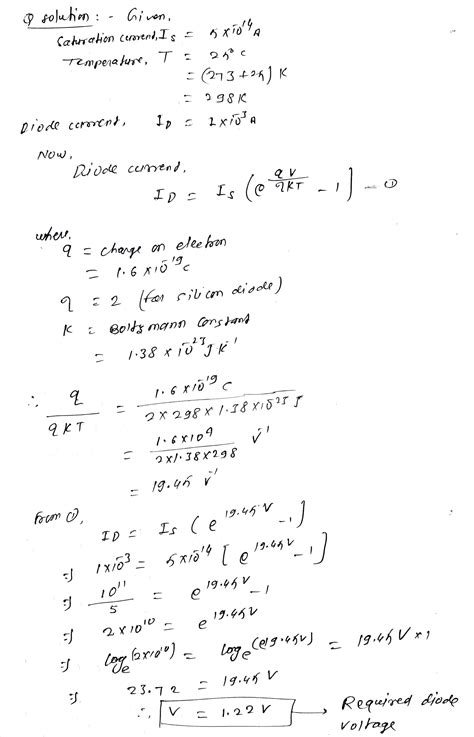 Q solution :- Given,
Saturation current, Is = 5 x 10^-14 A
Temperature, T = 25°C
= (273 + 25) K
= 298 K
Diode current, ID = 1 x 10^-3 A
Now,
Diode current,
ID = Is (e^(qV/ηKT) - 1) - ①
where,
q = charge on electron
= 1.6 x 10^-19 C
η = 2 (for silicon diode)
K = Boltzmann constant
= 1.38 x 10^-23 J K^-1
∴ q/ηKT = 1.6 x 10^-19 C / 2 x 298 x 1.38 x 10^-23 J
= 1.6 x 10^4 / 2 x 1.38 x 298 V^-1
= 19.45 V^-1
From ①,
ID = Is (e^19.45V - 1)
⇒ 1 x 10^-3 = 5 x 10^-14 [e^19.45V - 1]
⇒ 10^11 / 5 = e^19.45V - 1
⇒ 2 x 10^10 = e^19.45V
⇒ loge (2 x 10^10) = loge (e^19.45V) = 19.45 V x 1
⇒ 23.72 = 19.45 V
∴ V = 1.22 V → Required diode voltage